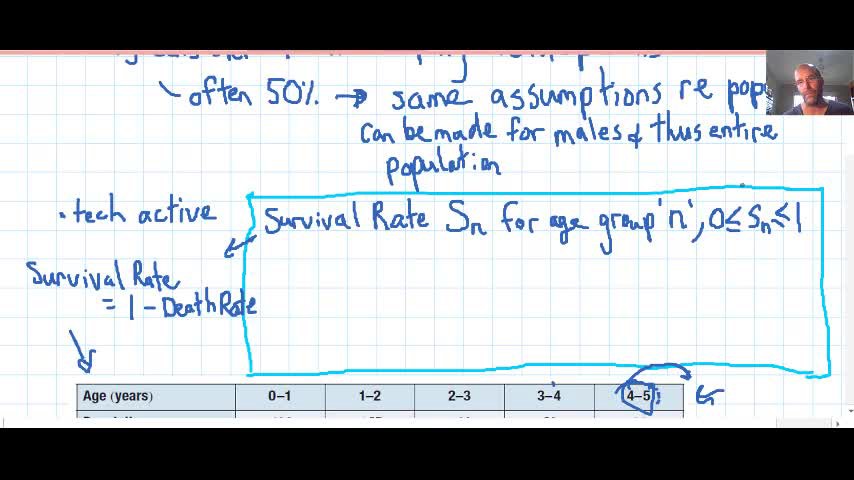 often 50% → same assumptions re
can be made for males & thus entire
population
• tech active
Survival Rate Sn for age group 'n', 0≤Sn≤1
Survival Rate
= 1 - Death Rate
Age (years) 0–1 1–2 2–3 3–4 4–5